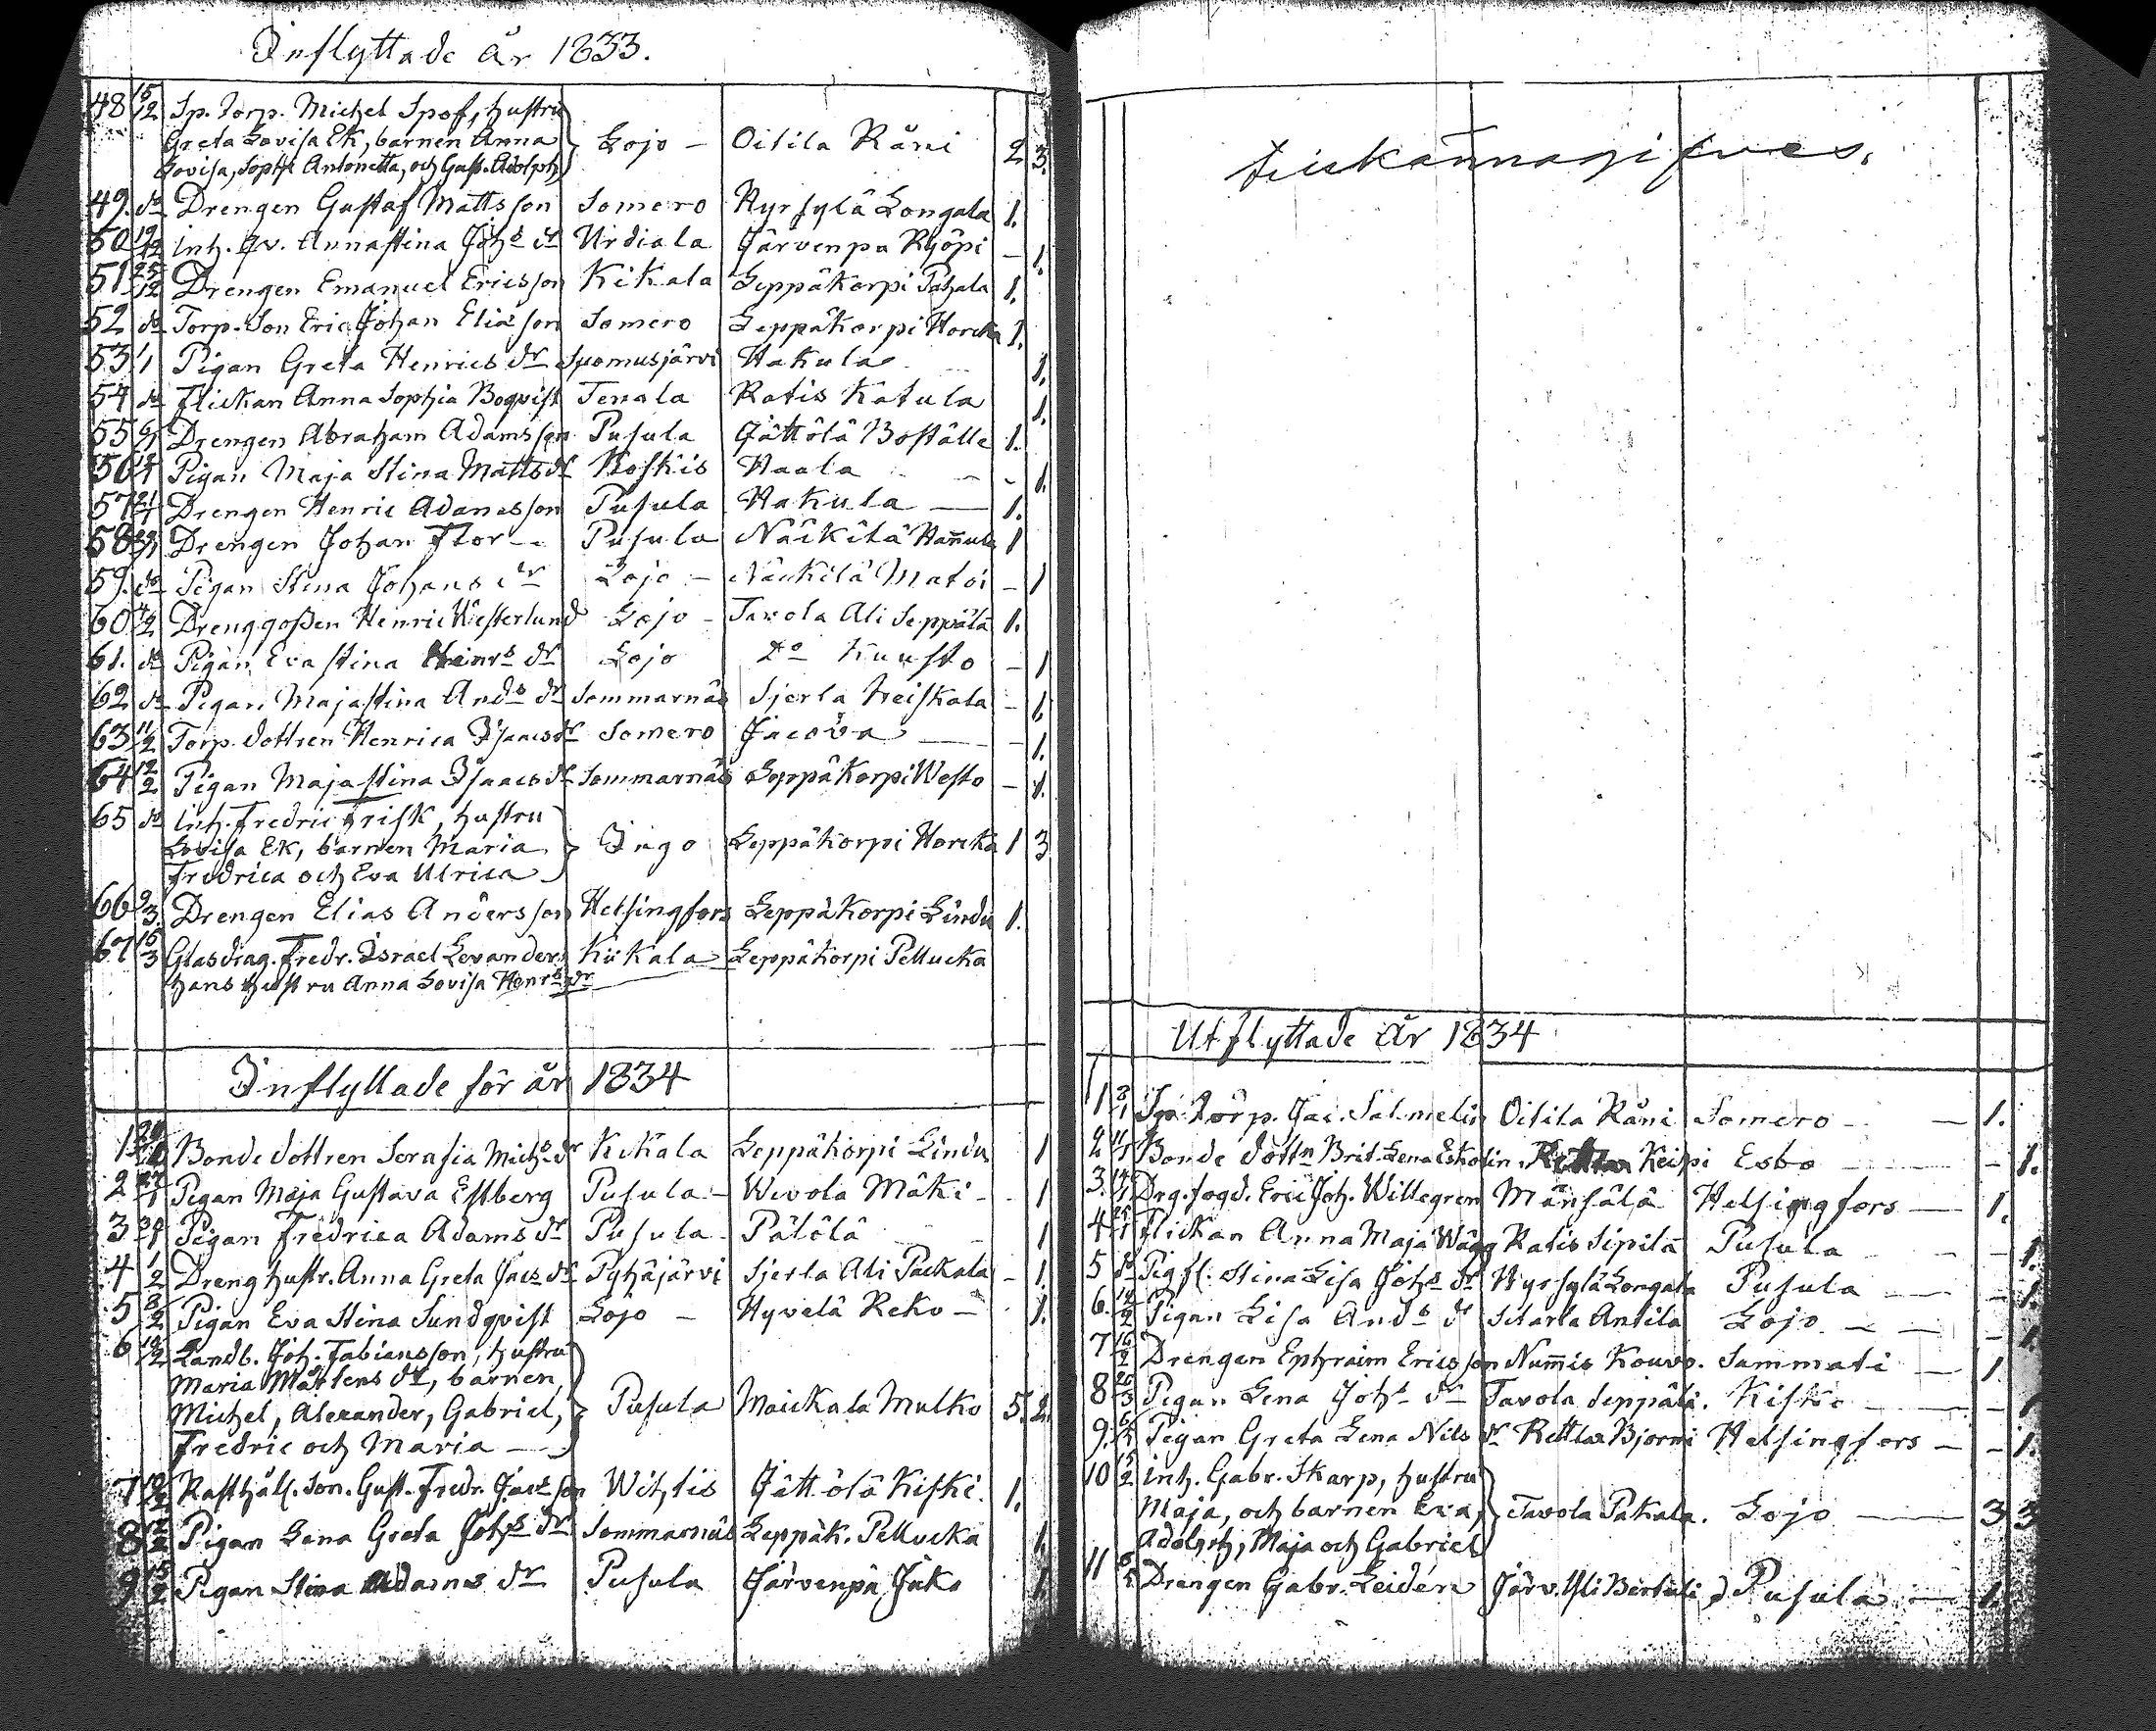 Inflyttade år 1833.
48 15/12 Sp. Torp. Michel Spof, hustru
Greta Lovisa Ek, barnen Anna } Lojo – Oitila Råni 2 3.
Lovisa, Sophi Antonetta, och Gust. Adolph
49. do Drengen Gustaf Mattsson Somero Hyrsylä Longala 1.
50 19/12 inh. Qv. Annastina Johs dr Urdiala Järvenpä Ryöpi – 1.
51 25/12 Drengen Emanuel Ericsson Kikala Leppäkorpi Pahala 1.
52 do Torp. Son Eric Johan Eliasson Somero Leppäkorpi Horcka 1.
53 1/1 Pigan Greta Henrics dr Suomusjärvi Hakula 1.
54 do Flickan Anna Sophia Boqvist Tenala Ratis Katula 1.
55 6/1 Drengen Abraham Adamsson Pusula Jättölä Boställe 1.
56 Pigan Maja Stina Matts dr Koskis Haala – 1.
57 21/1 Drengen Henric Adamsson Pusula Hakula — 1.
58 Drengen Johan Flor – Pusula Näckilä Hannula 1
59. do Pigan Stina Johans dr Lojo – Näckilä Matoi – 1
60 4/2 Drenggossen Henric Westerlund Lojo – Tavola Ali Seppälä 1.
61. do Pigan Eva Stina Heinrs dr Lojo do Kuusto – 1
62 do Pigan Majastina Ands dr Sommarnäs Sjerla Heiskala – 1.
63 11/2 Torp. dottren Henrica Isaacs dr Somero Jacova — 1.
64 12/2 Pigan Majastina Isaacs dr Sommarnäs Leppäkorpi Westo – 1.
65 do inh. Fredric Frisk, hustru
Lovisa Ek, barnen Maria } Ingo Leppäkorpi Horcka 1 3
Fredrica och Eva Ulrica
66 9/3. Drengen Elias Andersson Helsingfors Leppäkorpi Lindu 1.
67 16/3 Glasdrag. Fredr. Israel Levander Kiikala Leppäkorpi Pellucka
hans hustru Anna Lovisa Henrs dr
Inflyttade för år 1834
1 Bonde dottren Serafia Michs dr Kikala Leppäkorpi Lindu 1
2 27/1 Pigan Maja Gustava Estberg Pusula – Wivola Mäki – 1
3 Pigan Fredrica Adams dr Pusula Pälölä 1
4 1/2 Dreng hustr. Anna Greta Jacs dr Pyhäjärvi Sjerla Ali Packala – 1.
5 8/2 Pigan Eva Stina Sundqvist Lojo – Hyvelä Reko – 1.
6 10/2 Landb. Joh. Fabiansson, hustru
Maria Mårtens dr, barnen
Michel, Alexander, Gabriel, } Pusula Maickala Mulko 5. 2.
Fredric och Maria —
7 10/2 Rusthåll. Son. Gust. Fredr. Jacs son Wichtis Jättölä Kiski. 1.
8 12/2 Pigan Lena Greta Johs dr Sommarnäs Leppäk. Pellucka 1.
9 15/2 Pigan Stina Adams dr Pusula Järvenpä Jäko 1
Utflyttade år 1834
1 3/1 Sp. Torp. Jac. Salmelin Oitila Råni Somero – — 1.
2 11/1 Bonde dottn Brit. Lena Eskolin Keipi Esbo — – 1.
3. 14/1 Drg. fogd. Eric Joh. Willegren Månsälä Helsingfors — 1.
4 Flickan Anna Maja Wägg Ratis Sipilä Pusula – 1.
5 do Pigfl. Stina Lisa Johs dr Hyrsylä Longala Pusula — – 1.
6. Pigan Lisa Ands dr Sitarla Antila Lojo – — – 1.
7 16/2 Drengen Ephraim Ericsson Nummis Kouvo. Sammati — 1
8 20/3 Pigan Lena Johs dr Tavola Seppälä. Kisko — – 1
9. Pigan Greta Lena Nils dr Rettlax Bjorni Helsingfors – – 1.
10 inh. Gabr. Skarp, hustru
Maja, och barnen Eva, } Tavola Pakala. Lojo — 3 3
Adolph, Maja och Gabriel
11 Drengen Gabr. Leidén Järv. Yli Bertuli Pusula — 1.